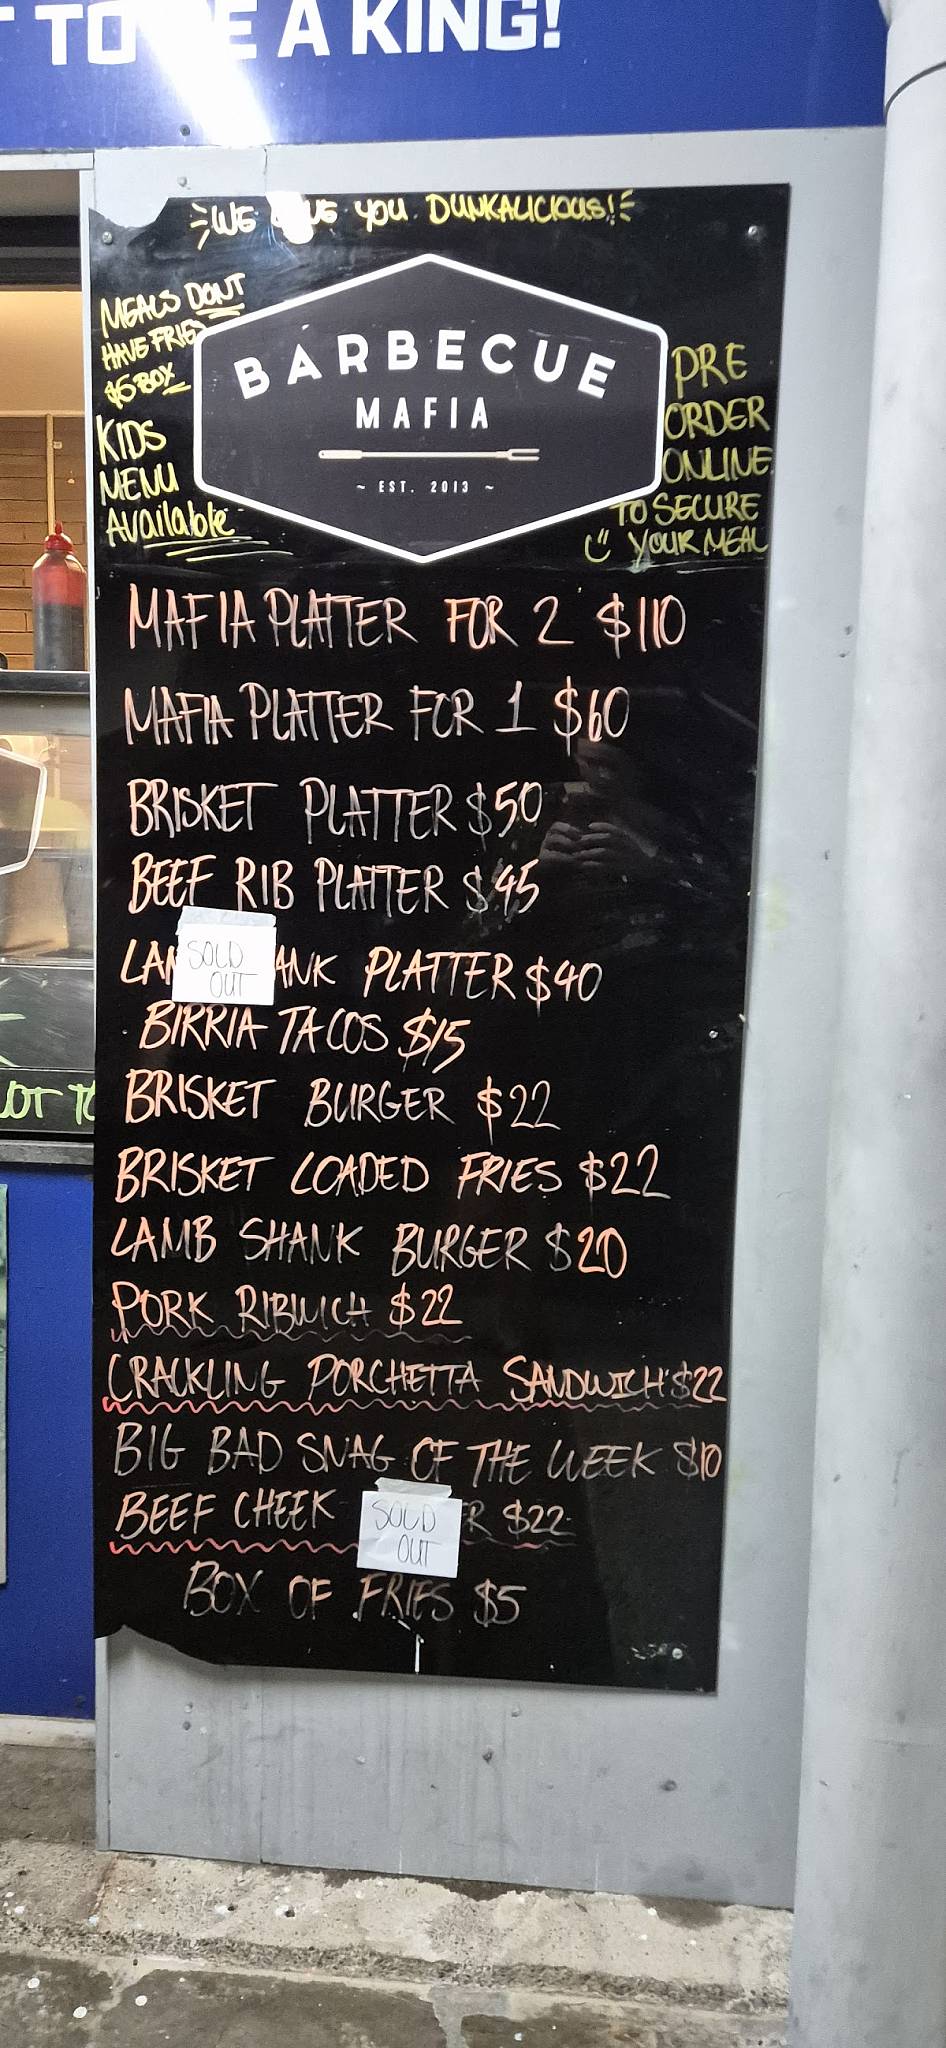 TO BE A KING!
WE YOU DUNKALICIOUS!
MEALS DONT
HAVE FRIES
$5 BOX
KIDS
MENU
Available
BARBECUE
MAFIA
~ EST. 2013 ~
PRE
ORDER
ONLINE
TO SECURE
YOUR MEAL
MAFIA PLATTER FOR 2 $110
MAFIA PLATTER FOR 1 $60
BRISKET PLATTER $50
BEEF RIB PLATTER $45
SOLD
OUT
PLATTER $40
BIRRIA TACOS $15
BRISKET BURGER $22
BRISKET LOADED FRIES $22
LAMB SHANK BURGER $20
PORK RIBWICH $22
CRACKLING PORCHETTA SANDWICH $22
BIG BAD SNAG OF THE WEEK $10
BEEF CHEEK $22
SOLD
OUT
BOX OF FRIES $5